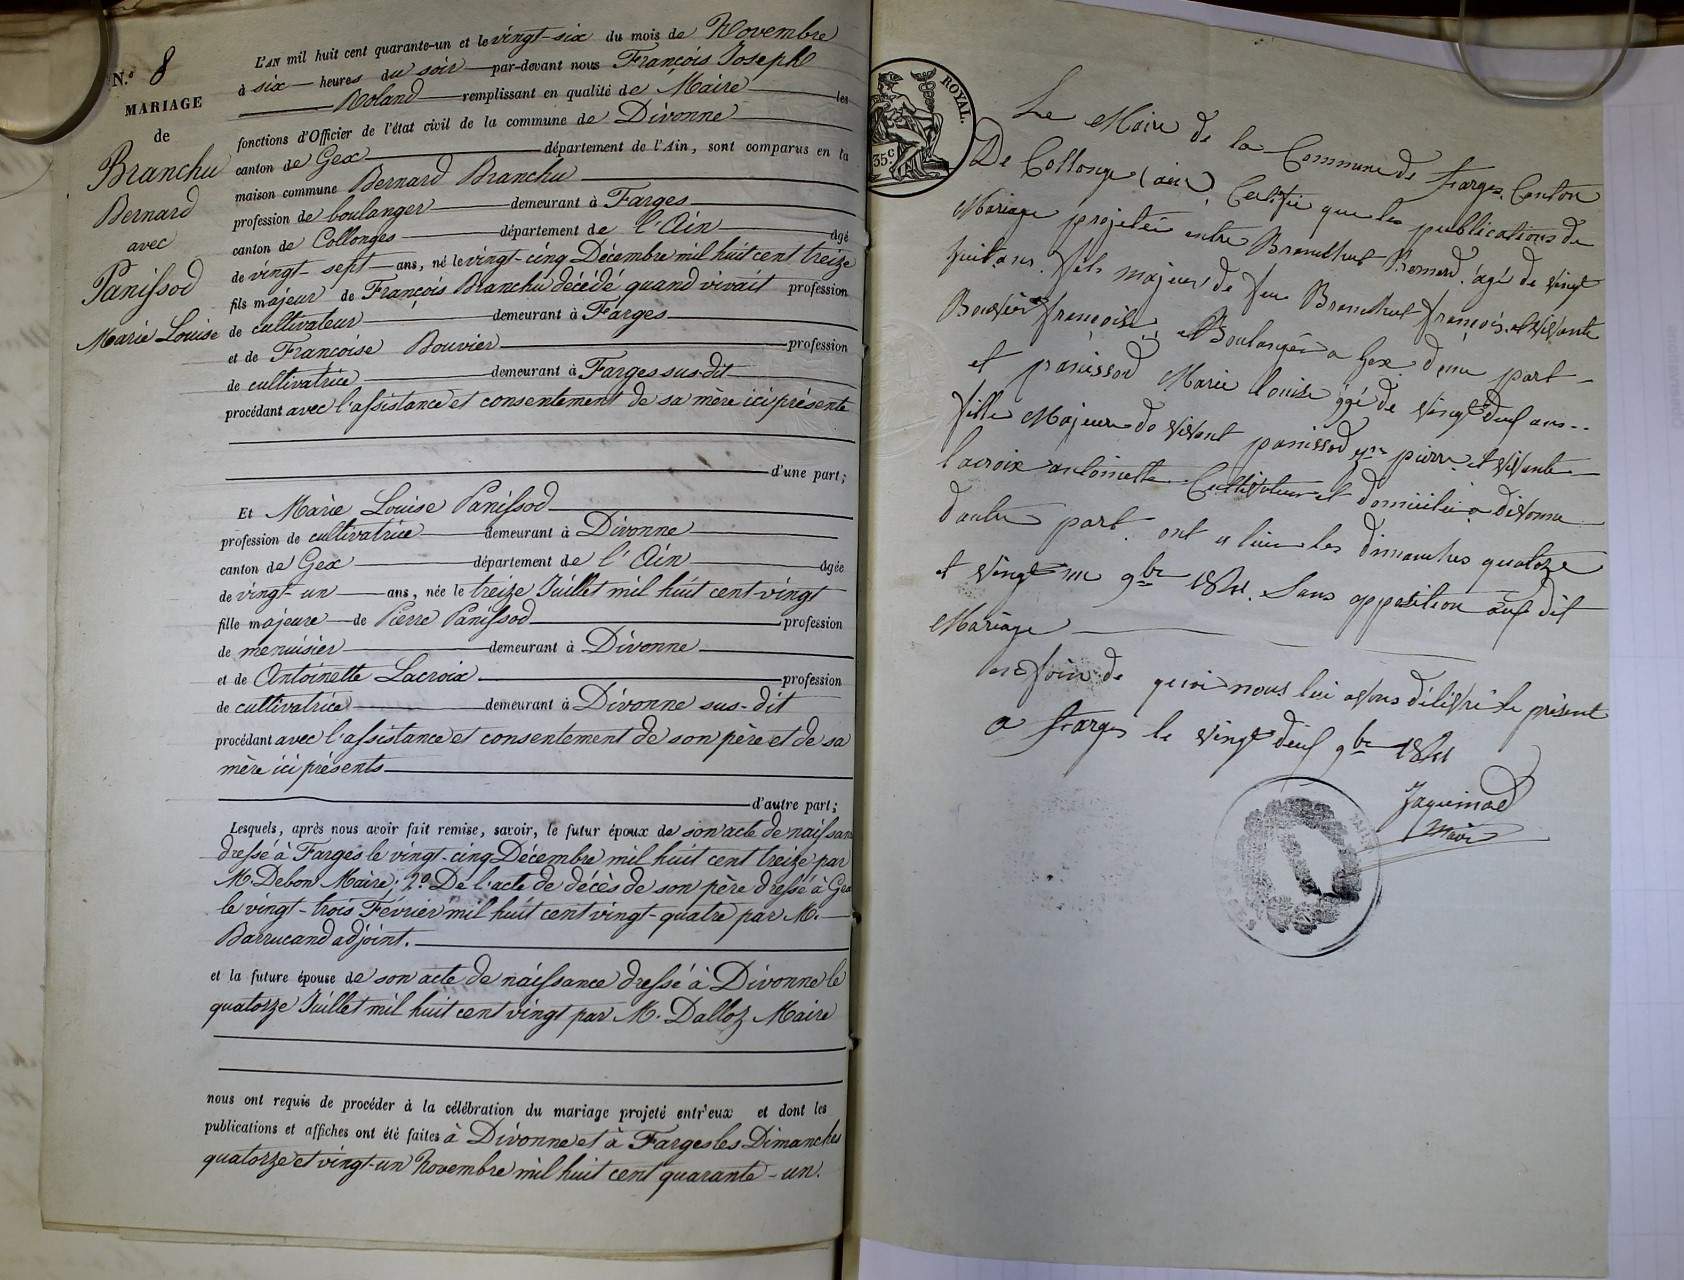 N.º 8
MARIAGE
de
Branchu
Bernard
avec
Panissod
Marie Louise
L'AN mil huit cent quarante-un et le vingt-six du mois de Novembre
à six heures du soir par-devant nous François Joseph
Roland remplissant en qualité de Maire les
fonctions d'Officier de l'état civil de la commune de Divonne
canton de Gex département de l'Ain, sont comparus en la
maison commune Bernard Branchu
profession de boulanger demeurant à Farges
canton de Collonges département de l'Ain âgé
de vingt-sept ans, né le vingt-cinq Décembre mil huit cent treize
fils majeur de François Branchu décédé quand vivait profession
de cultivateur demeurant à Farges
et de Françoise Bouvier profession
de cultivatrice demeurant à Farges sus-dit
procédant avec l'assistance et consentement de sa mère ici présente
d'une part;
Et Marie Louise Panissod
profession de cultivatrice demeurant à Divonne
canton de Gex département de l'Ain âgée
de vingt-un ans, née le treize Juillet mil huit cent vingt
fille majeure de Pierre Panissod profession
de menuisier demeurant à Divonne
et de Antoinette Lacroix profession
de cultivatrice demeurant à Divonne sus-dit
procédant avec l'assistance et consentement de son père et de sa
mère ici présents
d'autre part;
Lesquels, après nous avoir fait remise, savoir, le futur époux de son acte de naissan
dressé à Farges le vingt-cinq Décembre mil huit cent treize par
M. Debon Maire; 2º De l'acte de décès de son père dressé à Gex
le vingt-trois Février mil huit cent vingt-quatre par M.
Barrucand adjoint.
et la future épouse de son acte de naissance dressé à Divonne le
quatorze Juillet mil huit cent vingt par M. Dalloz Maire
nous ont requis de procéder à la célébration du mariage projeté entr'eux et dont les
publications et affiches ont été faites à Divonne et à Farges les Dimanches
quatorze et vingt-un Novembre mil huit cent quarante-un.
ROYAL.
35ᶜ
Le Maire de la Commune de Farges, Canton
De Collonge (ain), Certifie que les publications de
Mariage projetée entre Branchut Bernard. âgé de vingt
huit ans. fils majeur de feu Branchut françois. et vivante
Bouvier françoise, Boulanger a Gex d'une part
et panissod Marie louise âgé de vingt deux ans..
fille Majeure de vivant panissod pierre et vivante
lacroix antoinette Cultivateur et domicilié a divonne
d'autre part. ont u lieu les dimanches quatorze
et vingt un 9bre 1841. Sans opposition au dit
Mariage
en foir de quoi nous lui avons délivré le présent
a farges le vingt deux 9bre 1841
Jaquinod
Maire